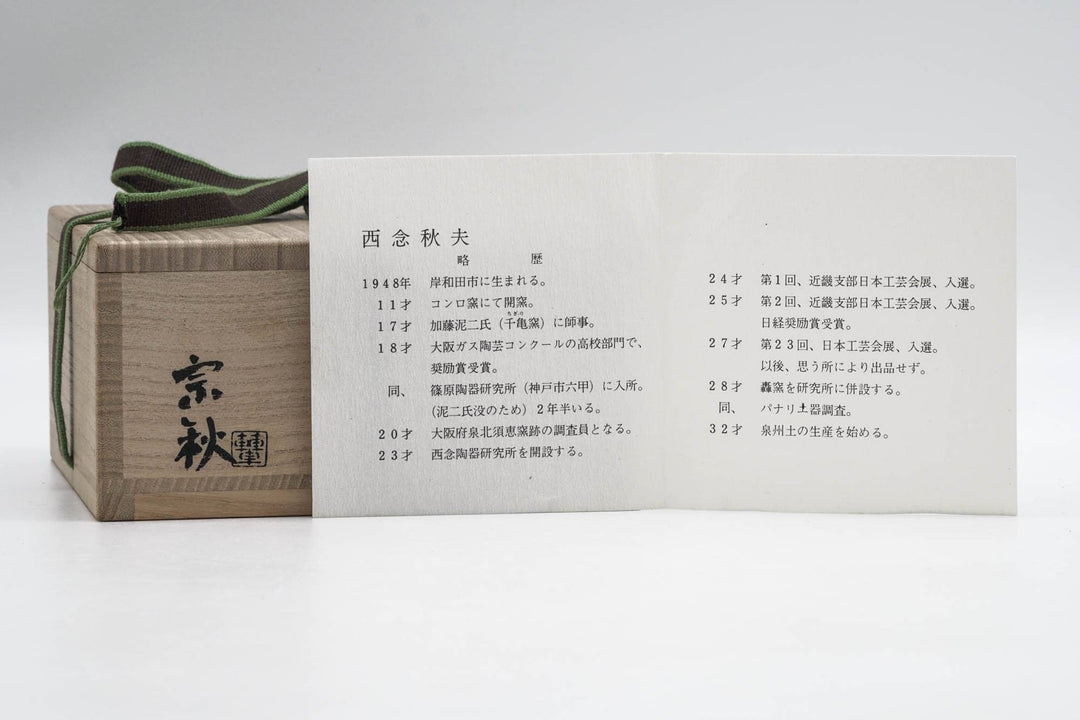 宗秋
轟
西念秋夫
略 歴
1948年 岸和田市に生まれる。
11才 コンロ窯にて開窯。
ちぎの
17才 加藤泥二氏(千亀窯)に師事。
18才 大阪ガス陶芸コンクールの高校部門で、
奨励賞受賞。
同、 篠原陶器研究所(神戸市六甲)に入所。
(泥二氏没のため)2年半いる。
20才 大阪府泉北須恵窯跡の調査員となる。
23才 西念陶器研究所を開設する。
24才 第1回、近畿支部日本工芸会展、入選。
25才 第2回、近畿支部日本工芸会展、入選。
日経奨励賞受賞。
27才 第23回、日本工芸会展、入選。
以後、思う所により出品せず。
28才 轟窯を研究所に併設する。
同、 パナリ土器調査。
32才 泉州土の生産を始める。